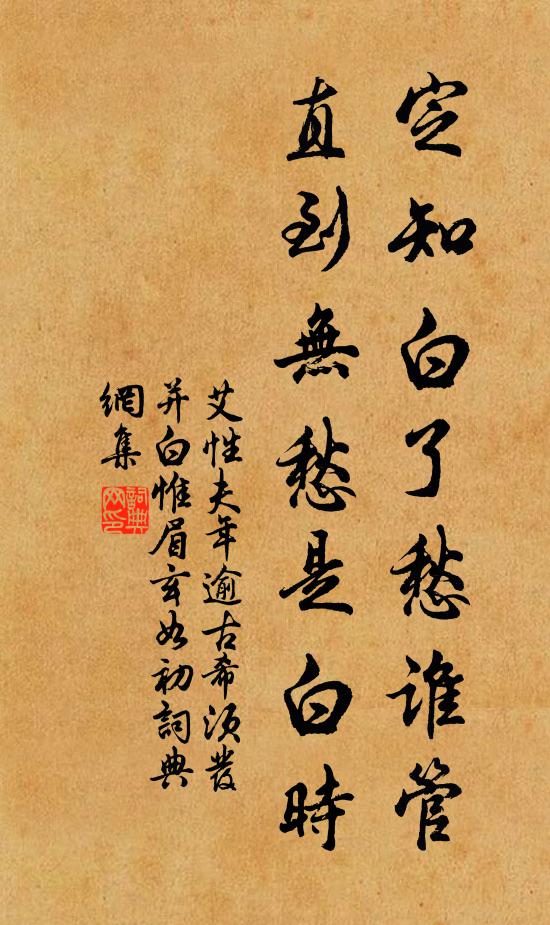 定知白了愁誰管
直到無愁是白時
艾性夫年逾古希須發
并白惟眉玄如初詞典
網集
詞典網印